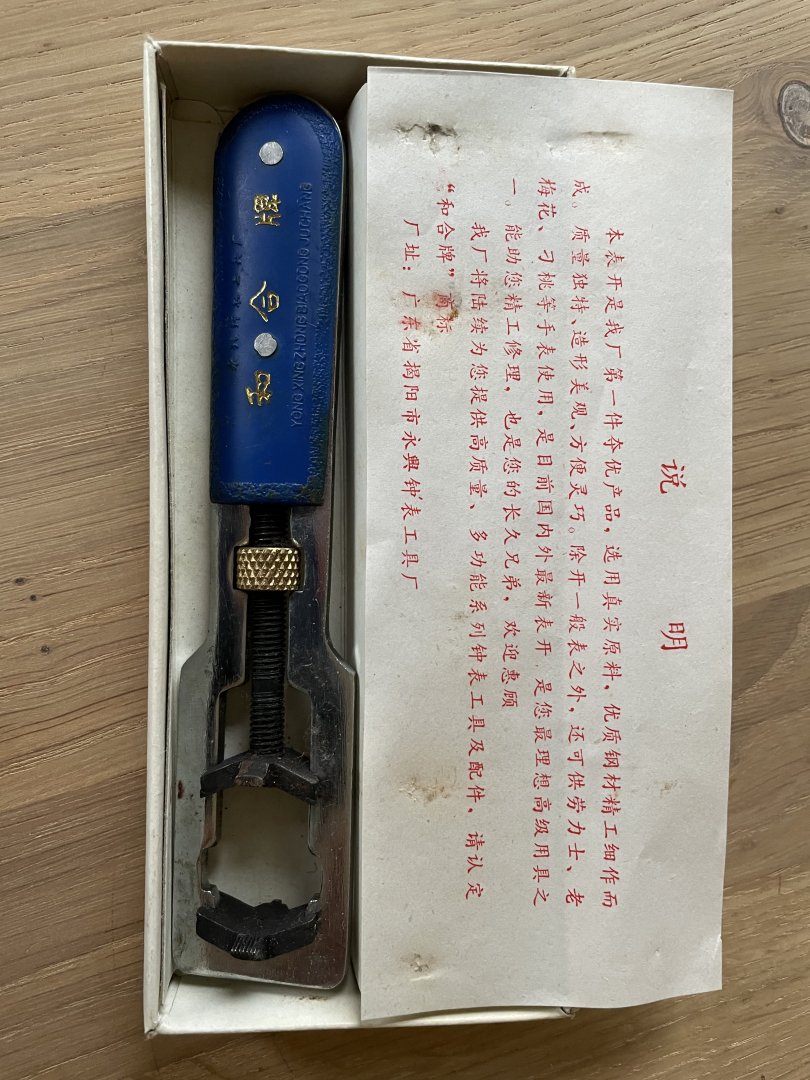 和合牌
YONGXINGZHONGBIAOGONGJUCHANG
说明
本表开是我厂第一件夺优产品，选用真实原料，优质钢材精工细作而
成。质量独特、造形美观、方便灵巧。除开一般表之外，还可供劳力士、老
梅花、刁桃等手表使用，是目前国内外最新表开，是您最理想高级用具之
一。能助您精工修理，也是您的长久兄弟，欢迎惠顾
我厂将陆续为您提供高质量、多功能系列钟表工具及配件，请认定
“和合牌”商标
厂址：广东省揭阳市永興钟表工具厂